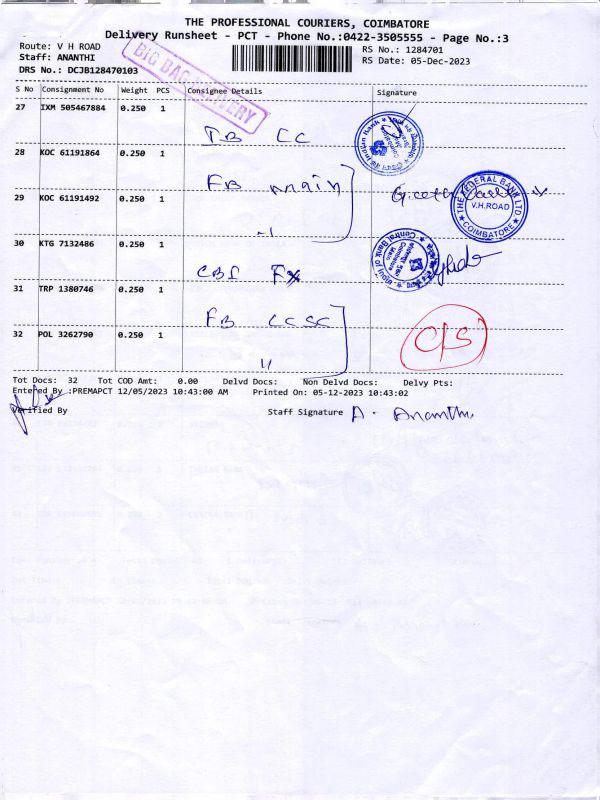 THE PROFESSIONAL COURIERS, COIMBATORE
Delivery Runsheet - PCT - Phone No.:0422-3505555 - Page No.:3
Route: V H ROAD
RS No.: 1284701
Staff: ANANTHI
RS Date: 05-Dec-2023
DRS No.: DCJB128470103
BIG BAG DELIVERY
S No Consignment No Weight PCS Consignee Details Signature
27 IXM 505467884 0.250 1
28 KOC 61191864 0.250 1
FB main
29 KOC 61191492 0.250 1
THE FEDERAL BANK LTD
V.H.ROAD
COIMBATORE
30 KTG 7132486 0.250 1
Central Bank of India
31 TRP 1380746 0.250 1
FB CCSC
32 POL 3262790 0.250 1
C/S
Tot Docs: 32 Tot COD Amt: 0.00 Delvd Docs: Non Delvd Docs: Delvy Pts:
Entered By :PREMAPCT 12/05/2023 10:43:00 AM Printed On: 05-12-2023 10:43:02
Verified By
Staff Signature A. Ananthi